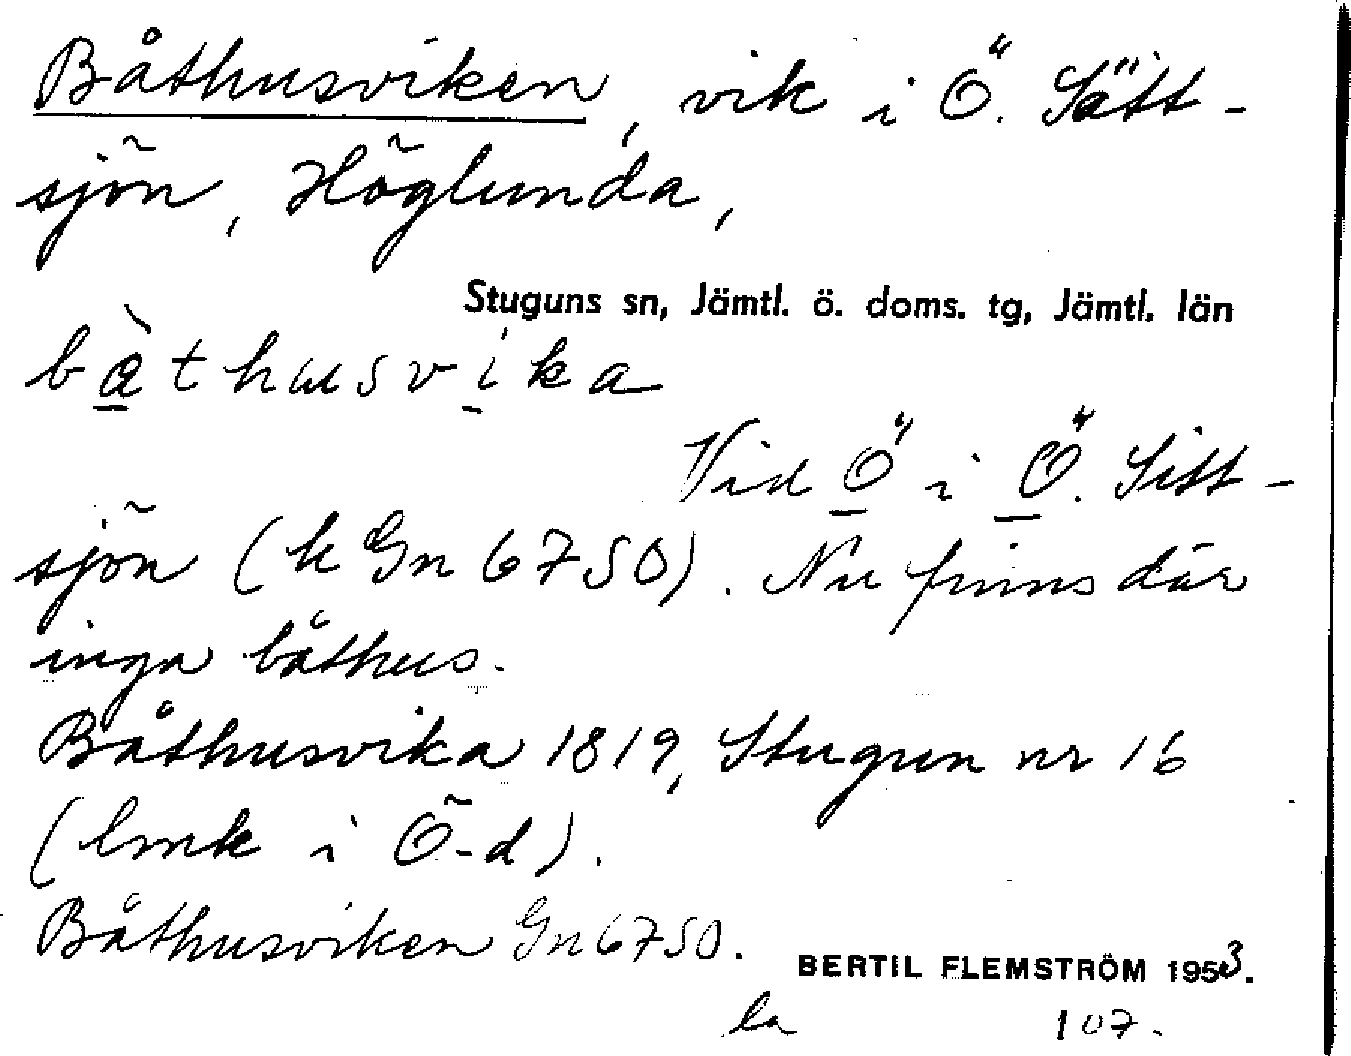 Båthusviken, vik i Ö. Sätt-
sjön, Höglunda,
Stuguns sn, Jämtl. ö. doms. tg, Jämtl. län
bàthusvika
Vid Ö i Ö. Sitt-
sjön (k Gn 6750). Nu finns där
inga båthus.
Båthusvika 1819, Stugun nr 16
(lmk i Ö-d).
Båthusviken Gn 6750.
BERTIL FLEMSTRÖM 1953.
la 107.